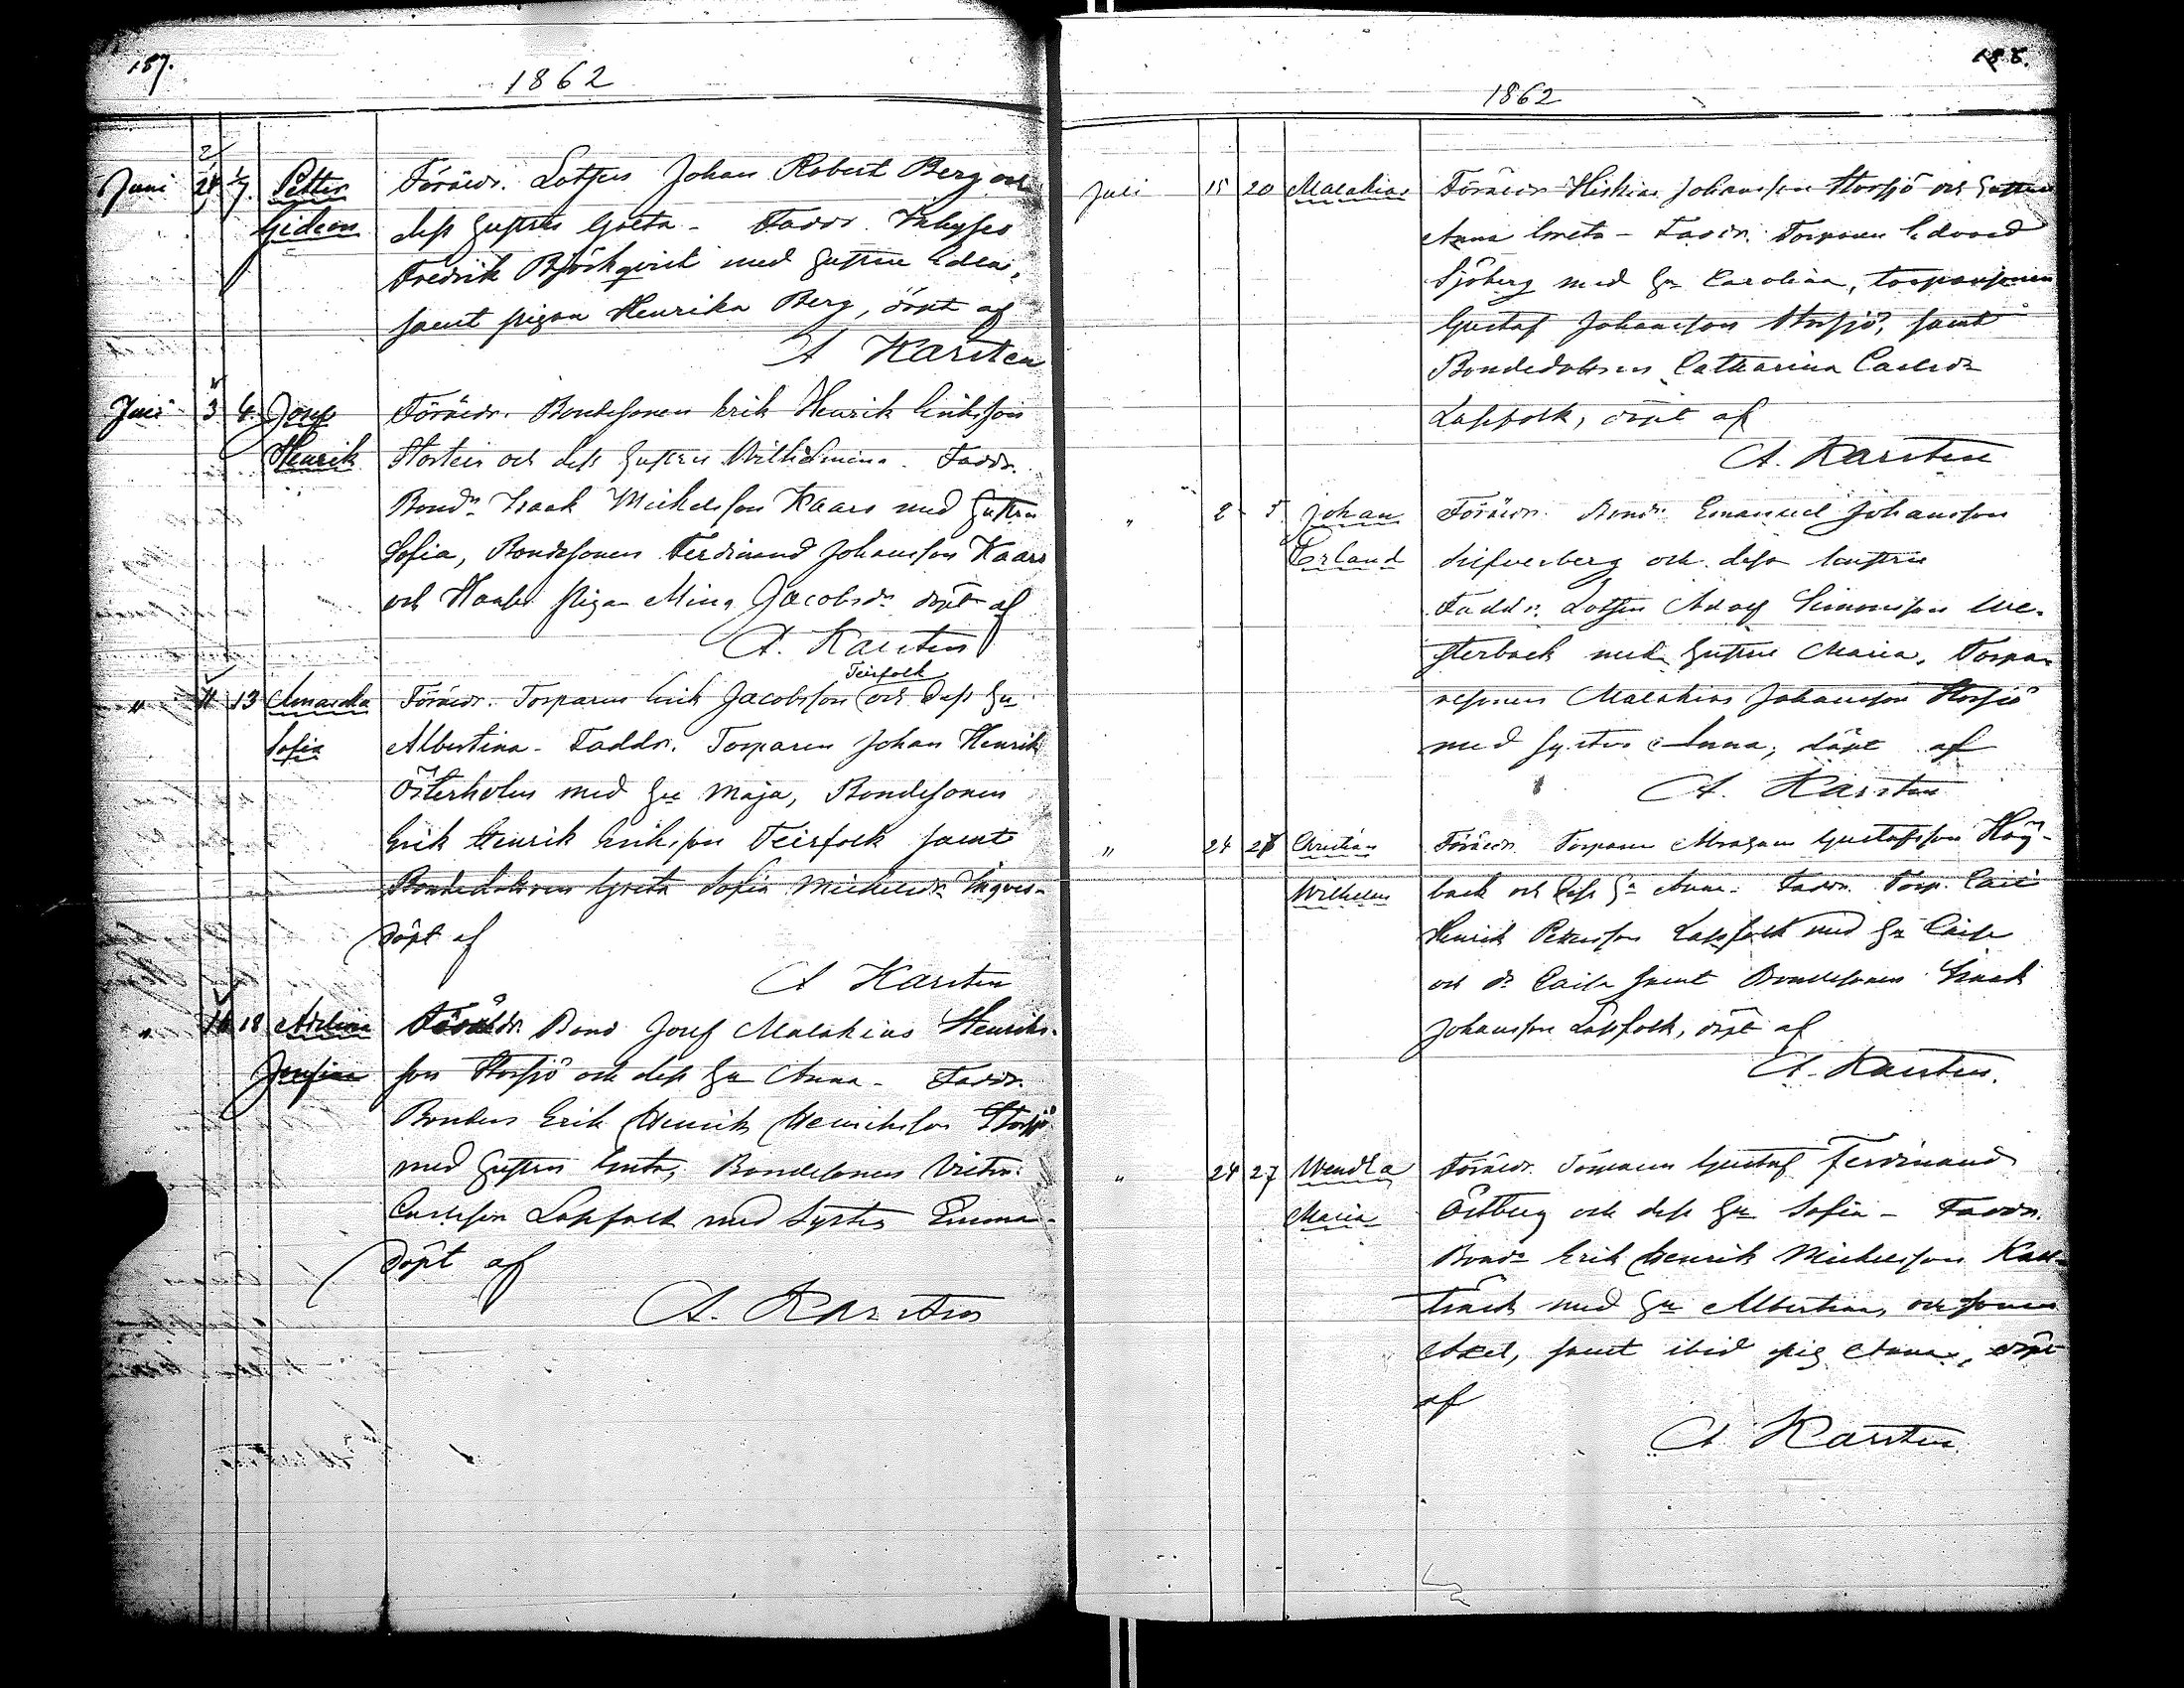 187.
1862
Juni 24 1/7. Petter Föräldr. Lotsen Johan Robert Berg och
Gideon dess hustru Greta - Faddr. Inhyses
Fredrik Björkqvist med hustru Edla,
samt pigan Henrika Berg, döpt af
A Karsten
Juli 3 6. Josef Föräldr. Bondesonen Erik Henrik Eriksson
Henrik Storteir och dess hustru Wilhelmina. Faddr.
Bond. Isaak Michelsson Kaars med hustru
Sofia, Bondesonen Ferdinand Johansson Kaars
och pigan Mina Jacobsdr. döpt af
A. Karsten
Teirfolk
" 11 13 Amanda Föräldr. Torparen Erik Jacobsson och dess hu
Sofia Albertina - Faddr. Torparen Johan Henrik
Österholm med hu Maja, Bondesonen
Erik Henrik Eriksson Teirfolk samt
Bondedottren Greta Sofia Michelsdr
döpt af
A Karsten
" 16 18 Adelina Föräldr. Bond Josef Malakias Henriks-
Josefina son Storsjö och dess hu Anna - Faddr.
Bonden Erik Henrik Henriksson Storsjö
med hustru Greta, Bondesonen Victor
Carlsson Lappfolk med syster Emma -
döpt af
A. Karsten
188.
1862
Juli 15 20 Malakias Föräldr Hiskias Johansson Storsjö och hustru
Anna Greta - Faddr. Torparen Edvard
Sjöberg med hu Carolina, torparsonen
Gustaf Johansson Storsjö, samt
Bondedottren Catharina Carlsdr
Lappfolk, döpt af
A. Karsten
" 2 5 Johan Föräldr. Bond. Emanuel Johansson
Erland Silfverberg och dess hustru
Faddr. Lotsen Adolf Simonsson We-
sterback med hustru Maria, Torpa-
resonen Malakias Johansson Storsjö
med syster Anna, döpt af
A. Karsten
" 24 27 Christian Föräldr. Torparen Abraham Gustafsson Hög-
Wilhelm back och dess hu Anna - Faddr. Torp. Carl
Henrik Pettersson Lappfolk med hu Caisa
och dr Caisa samt Bondesonen Isaak
Johansson Lappfolk, döpt af
A. Karsten.
" 24 27 Wendla Föräldr. Torparen Gustaf Ferdinand
Maria Östberg och dess hu Sofia - Faddr.
Bond. Erik Henrik Michelsson
med hu Albertina, och sonen
Axel, samt ibid pig Anna, döpt
af
A Karsten